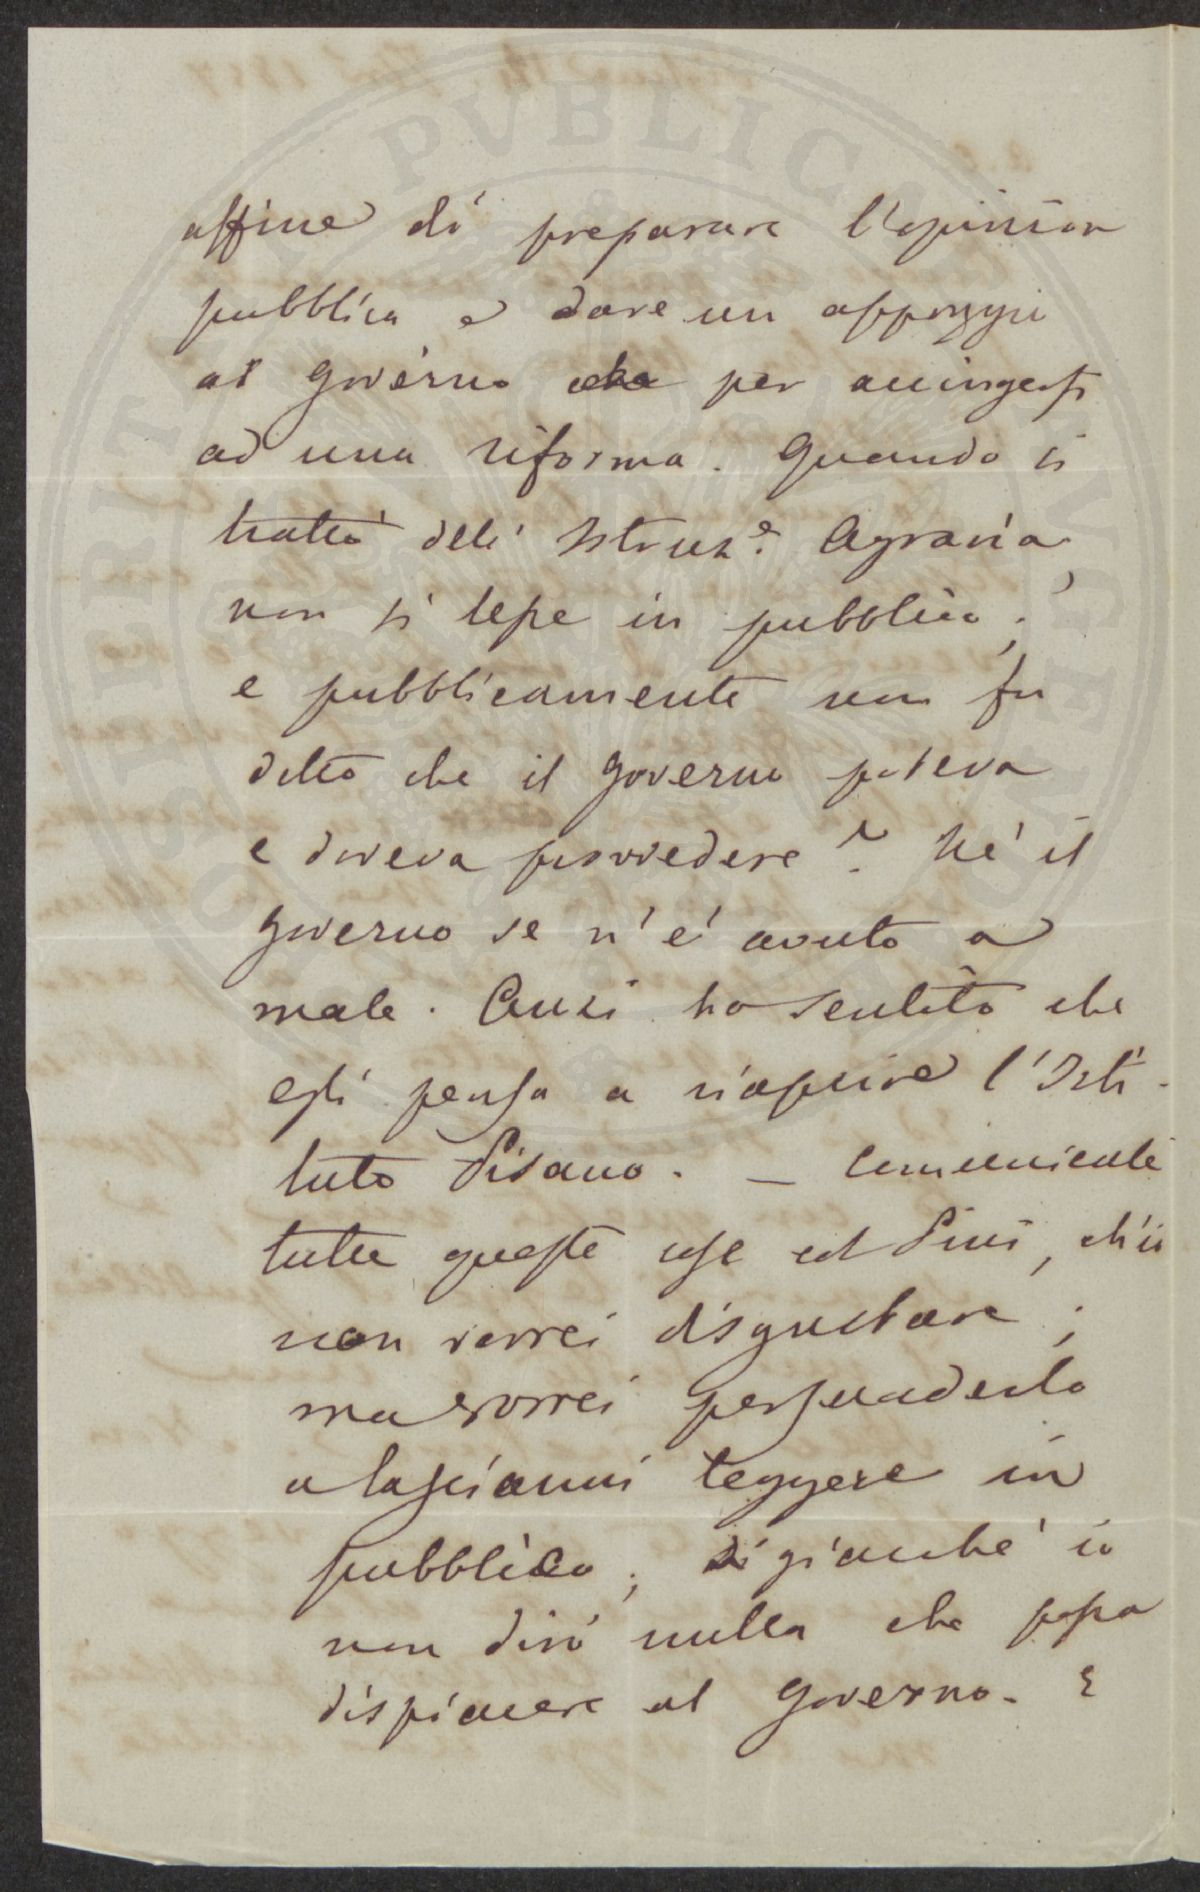 affine di preparare l'opinion
pubblica e dare un appoggio
al governo che per accingersi
ad una riforma. Quando si
trattò dell' Istruz.e Agraria,
non si lesse in pubblico;
e pubblicamente non fu
detto che il governo poteva
e doveva provvedere? Nè il
governo se n'è avuto a
male. Anzi ho sentito che
egli pensa a riaprire l'Isti-
tuto Pisano. — Comunicate
tutte queste cose al Pini, ch'io
non vorrei disgustare;
ma vorrei persuaderlo
a lasciarmi leggere in
pubblico; giacchè io
non dirò nulla che possa
dispiacere al governo. E